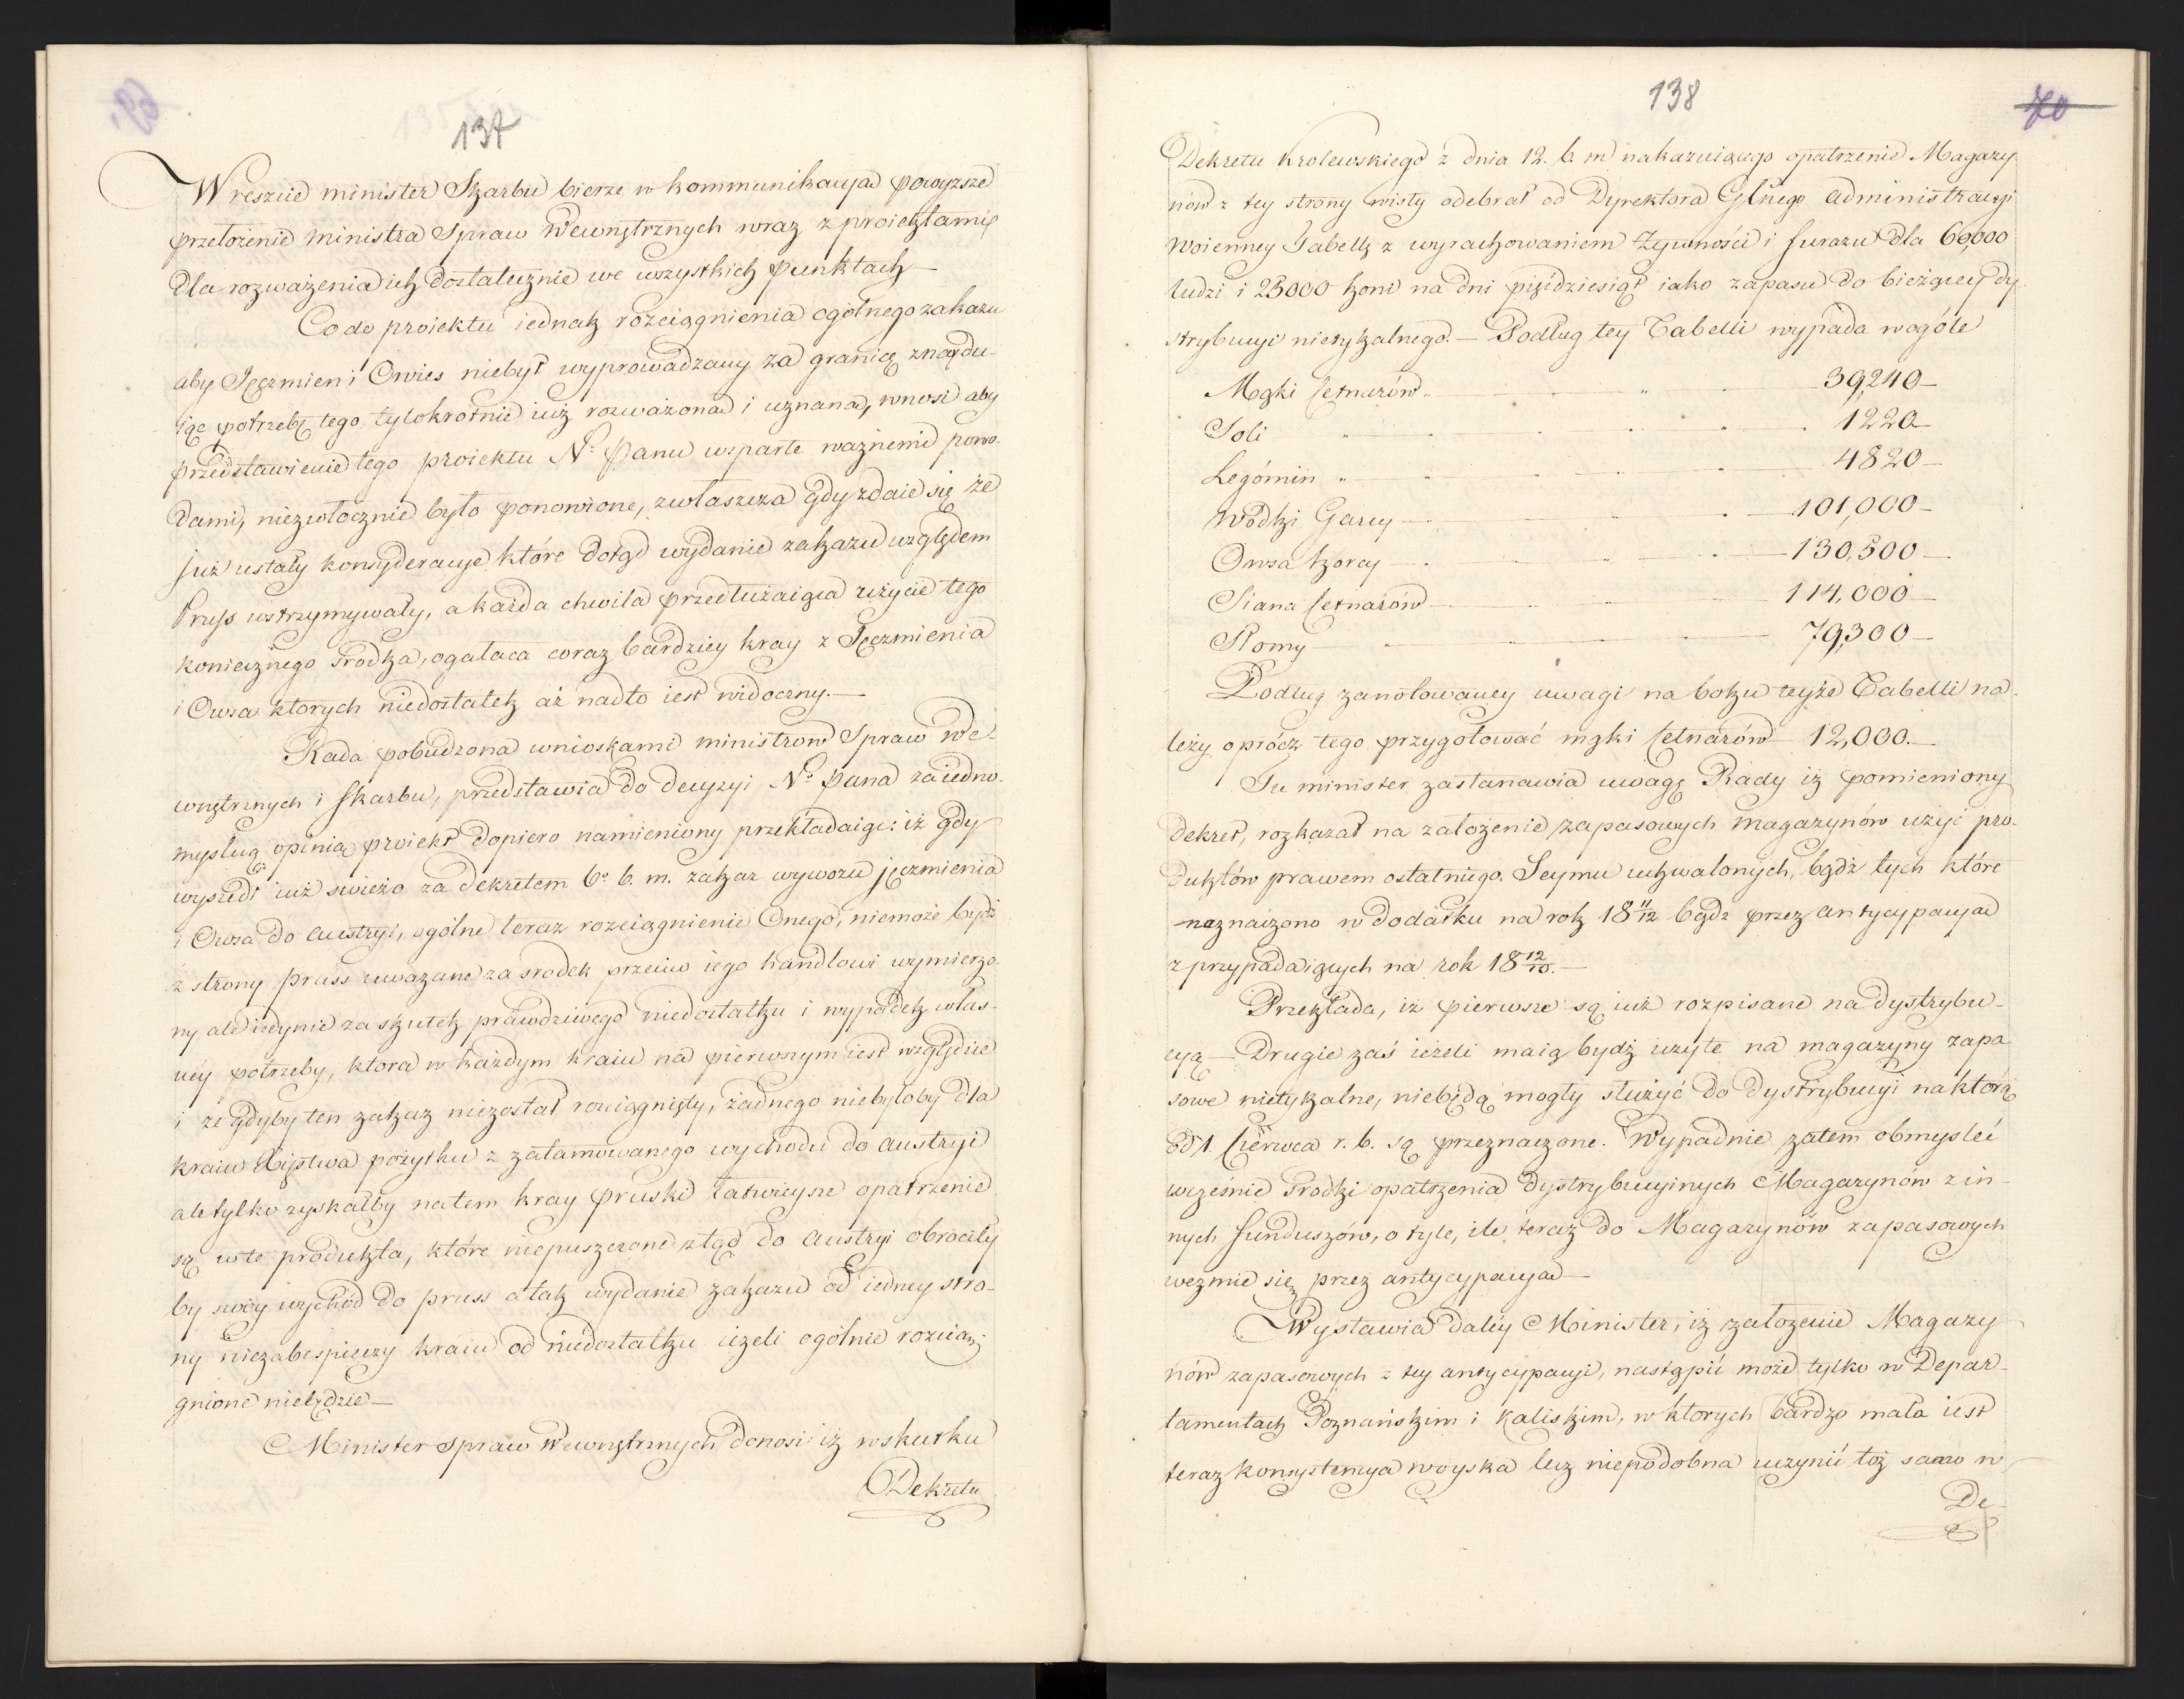 137
Wreszcie minister Skarbu bierze w kommunikacya powyzsze
przełożenie ministra Spraw Wewnętrznych wraz z proiektami
dla rozważenia ich dostatecznie we wszystkich punktach —
Co do proiektu iednak rozciągnienia ogólnego zakazu
aby Jęczmien i Owies niebył wyprowadzany za granicę znaydu-
iąc potrzebę tego tylokrotnie iuż rozważona i uznana, wnosi aby
przedstawienie tego proiektu N. Panu wsparte ważnemi powo-
dami, niezwłocznie było ponowione, zwłaszcza gdy zdaie się że
już ustały konsyderacye które dotąd wydanie zakazu względem
Pruss wstrzymywały, a każda chwila przedłużaiąca użycie tego
koniecznego srodka, ogałaca coraz bardziey kray z Jęczmienia
i Owsa ktorych niedostatek aż nadto iest widoczny. —
Rada pobudzona wnioskami ministrow Spraw We-
wnętrznych i Skarbu, przedstawia do decyzyi No Pana za iedno-
myslną opinią proiekt dopiero namieniony przekładaiąc: iż gdy
wyszedł iuż swieżo za dekretem 6o b. m. zakaz wywozu jęczmienia
i Owsa do Austryi, ogólne teraz rozciągnienie Onego, niemoże bydź
z strony pruss uwazane za srodek przeciw iego handlowi wymierzo-
ny ale iedynie za skutek prawdziwego niedostatku i wypadek włas-
ney potrzeby, ktora w każdym kraiu na pierwszym iest względzie
i że gdyby ten zakaz niezostał rozciągnięty, żadnego niebyłoby dla
kraiu Xięstwa pożytku z zatamowanego wychodu do Austryi
ale tylko zyskałby natem kray pruski łatwieysze opatrzenie
się w te produkta, które niepuszczone ztąd do Austryi obrociły
by swóy wychód do pruss a tak wydanie zakazu od iedney stro-
ny niezabespieczy kraiu od niedostatku ieżeli ogólnie rozcią-
gnione niebędzie —
Minister spraw Wewnętrznych donosi iż w skutku
Dekretu
138
70
Dekretu Krolewskiego z dnia 12. b. m nakazuiącego opatrzenie Magazy
nów z tey strony wisły odebrał od Dyrektora Glnego administracyi
Woienney Tabellę z wyrachowaniem Żywności i furazu dla 60,000
ludzi i 23000 koni na dni pięćdziesiąt iako zapasu do bieżącey dy
strybucyi nietykalnego. — Podług tey Tabelli wypada wogóle
Mąki Cetnarów — 39,240 —
Soli — 1220 —
Legómin — 4820 —
Wódki Garcy — 101,000 —
Owsa korcy — 130,500 —
Siana Cetnarów — 114,000 —
Słomy — 79,300 —
Podług zanotowaney uwagi na boku teyże Tabelli na-
leży oprócz tego przygotować mąki Cetnarów 12,000. —
Tu minister zastanawia uwagę Rady iż pomieniony
dekret, rozkazał na założenie zapasowych magazynów użyć pro-
duktów prawem ostatniego Seymu uchwalonych, bądź tych które
naznaczono w dodatku na rok 18 11/12 bądz przez antycypacya
z przypadaiących na rok 18 12/13. —
Przekłada, iż pierwsze są iuż rozpisane na dystrybu-
cyą — Drugie zaś ieżeli maią bydź użyte na magazyny zapa
sowe nietykalne, niebędą mogły służyć do dystrybucyi na którą
od 1. Czerwca r. b. są przeznaczone. Wypadnie zatem obmysleć
wcześnie srodki opatrzenia dystrybucyinych Magazynów z in-
nych funduszów, o tyle, ile teraz do Magazynów zapasowych
wezmie się przez antycypacya —
Wystawia daléy Minister, iż założenie Magazy
nów zapasowych z tey antycypacyi, nastąpić może tylko w Depar-
tamentach Poznańskim i Kaliskim, w ktorych bardzo mała iest
teraz konsystencya woyska lecz niepodobna uczynić toż samo w
De-